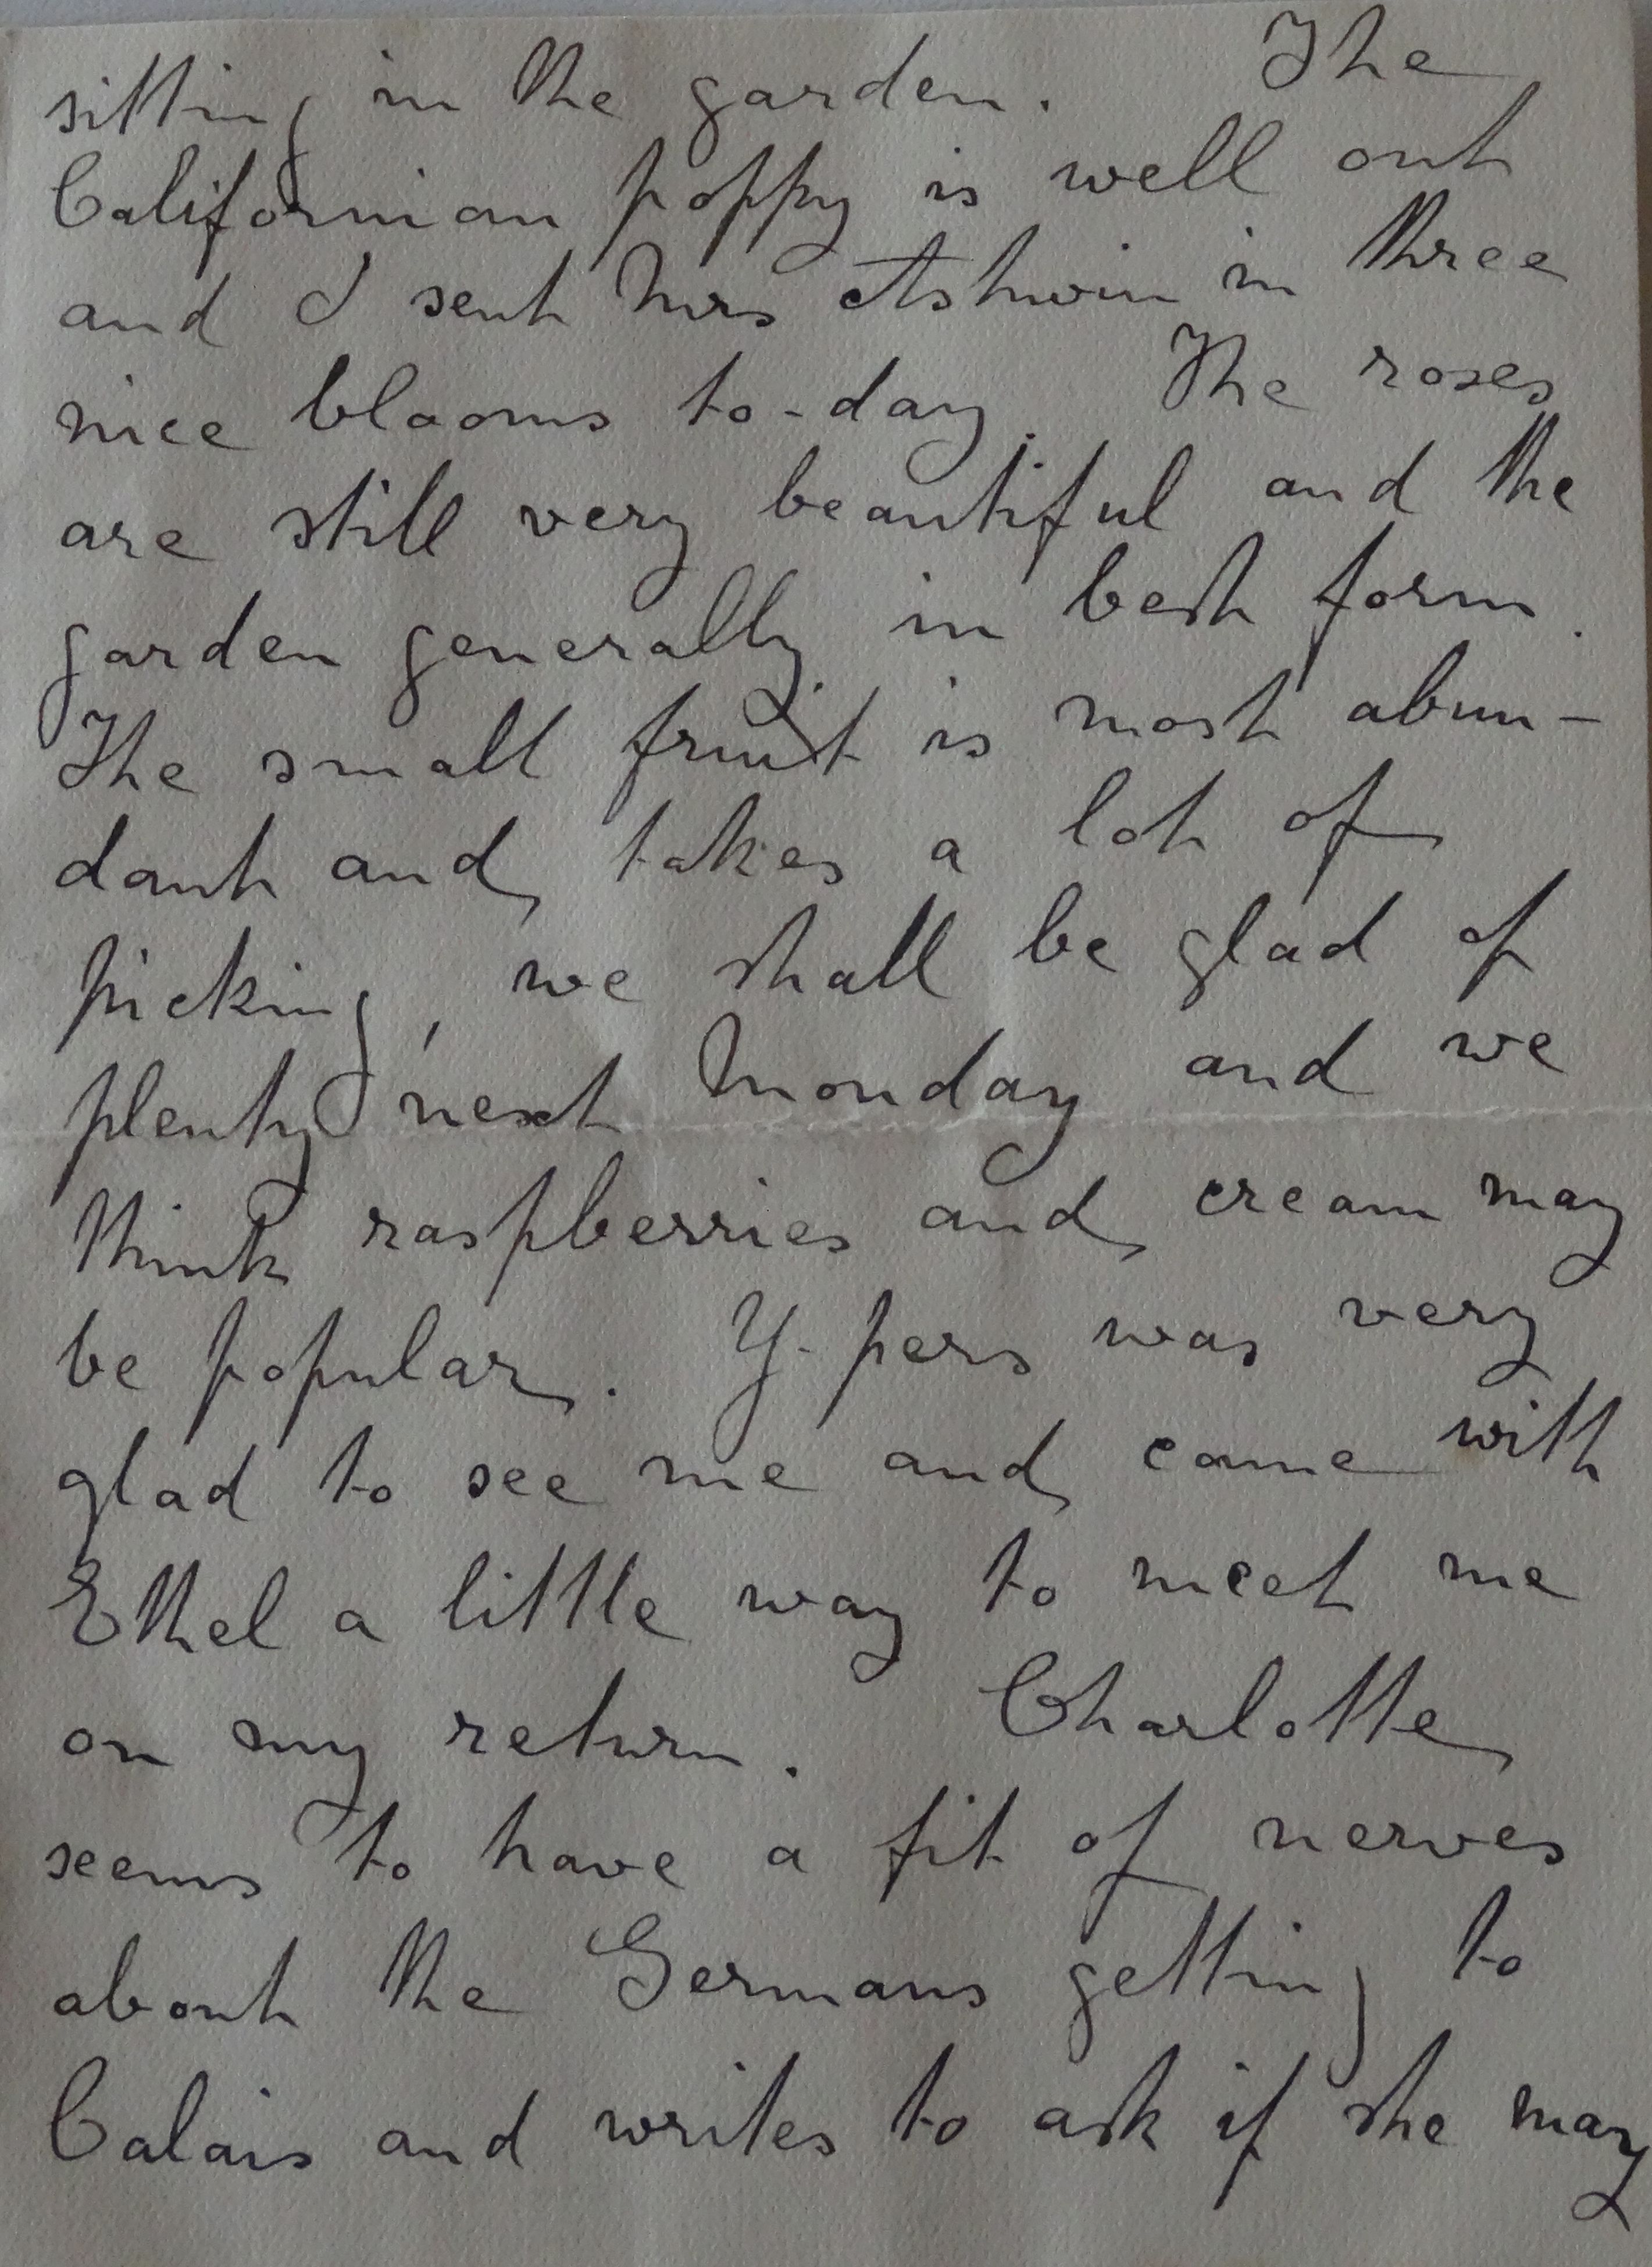 sitting in the garden. The
Californian poppy is well out
and I sent Mrs Ashwin in three
nice blooms to-day. The roses
are still very beautiful and the
garden generally in best form.
The small fruit is most abun-
dant and takes a lot of
picking, we shall be glad of
plenty next Monday and we
think raspberries and cream may
be popular. Y-pers was very
glad to see me and came with
Ethel a little way to meet me
on my return. Charlotte
seems to have a fit of nerves
about the Germans getting to
Calais and writes to ask if she may